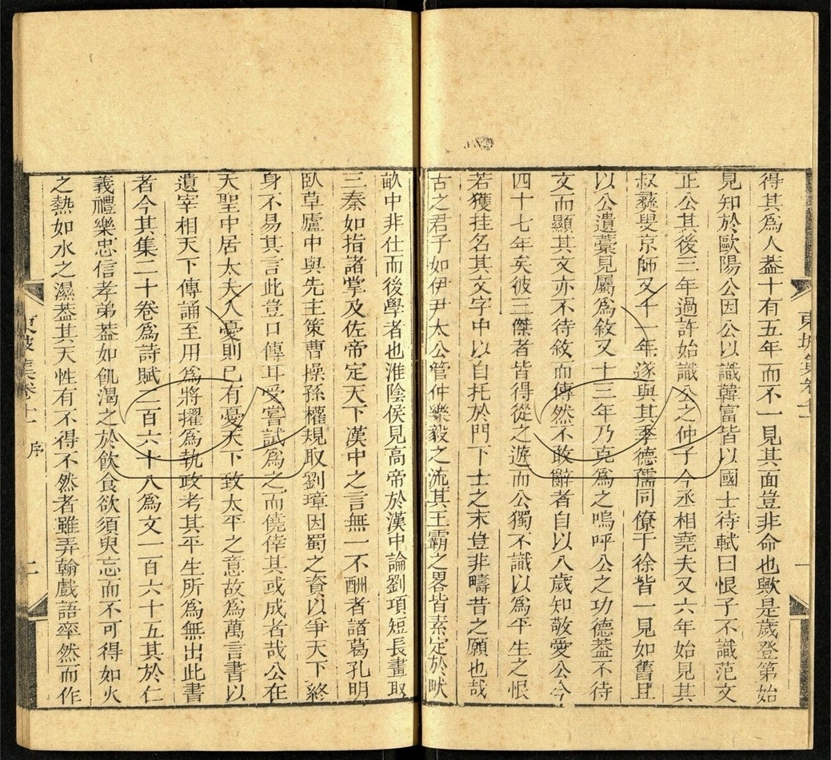 東坡集卷十一
一
得其爲人葢十有五年而不一見其面豈非命也歟是歲登第始
見知於歐陽公因公以識韓富皆以國士待軾曰恨子不識范文
正公其後三年過許始識公之仲子今丞相堯夫又六年始見其
叔彝叟京師又十一年遂與其季德孺同僚于徐皆一見如舊且
以公遺藁見屬爲敘又十三年乃克爲之嗚呼公之功德葢不待
文而顯其文亦不待敘而傳然不敢辭者自以八歲知敬愛公今
四十七年矣彼三傑者皆得從之遊而公獨不識以爲平生之恨
若獲挂名其文字中以自托於門下士之末豈非疇昔之願也哉
古之君子如伊尹太公管仲樂毅之流其王霸之畧皆素定於畎
畝中非仕而後學者也淮陰侯見高帝於漢中論劉項短長畫取
三秦如指諸掌及佐帝定天下漢中之言無一不酬者諸葛孔明
臥草廬中與先主策曹操孫權規取劉璋因蜀之資以爭天下終
身不易其言此豈口傳耳受嘗試爲之而僥倖其或成者哉公在
天聖中居太夫人憂則已有憂天下致太平之意故爲萬言書以
遺宰相天下傳誦至用爲將擢爲執政考其平生所爲無出此書
者今其集二十卷爲詩賦二百六十八爲文一百六十五其於仁
義禮樂忠信孝弟葢如飢渴之於飲食欲須臾忘而不可得如火
之熱如水之濕葢其天性有不得不然者雖弄翰戲語率然而作
東坡集卷十一 序
二